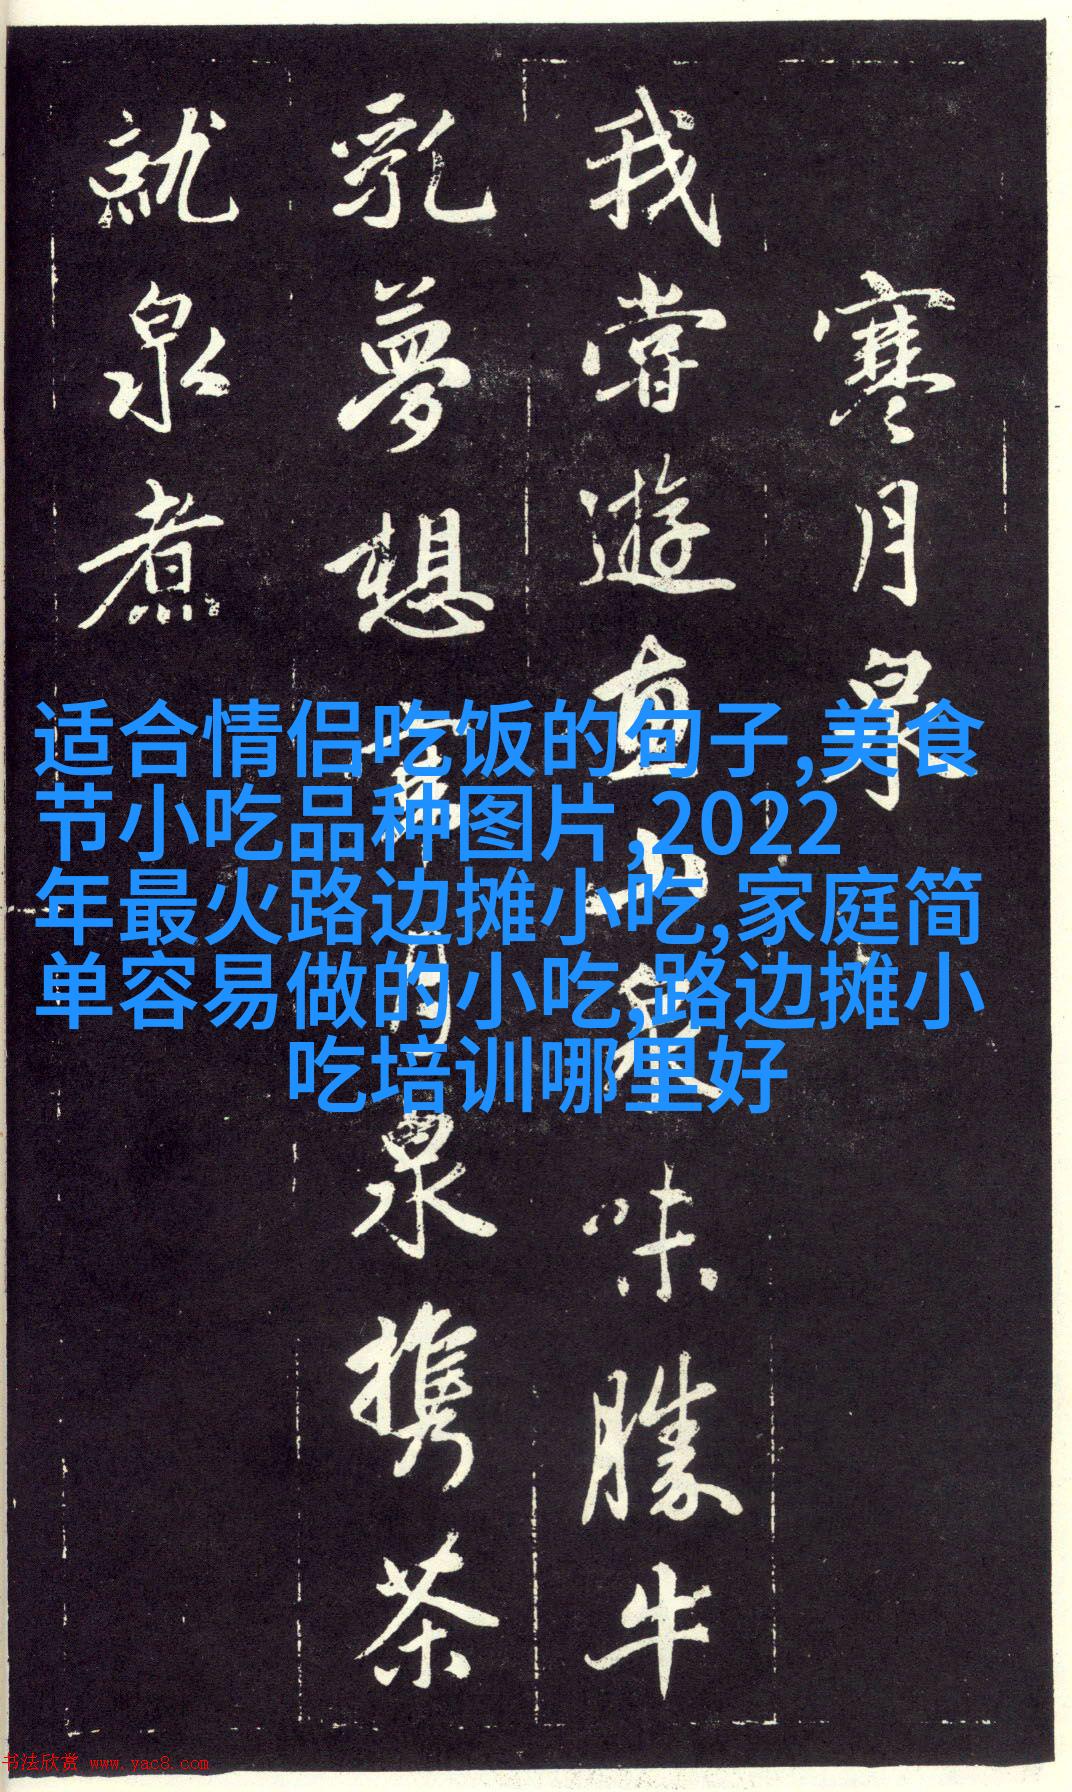 寒月泉
我嘗遊惠山泉味勝牛
乳夢想寒月泉携茶
就泉煮
适合情侣吃饭的句子,美食
节小吃品种图片,2022
年最火路边摊小吃,家庭简
单容易做的小吃,路边摊小
吃培训哪里好
书法欣赏 www.yac8.com